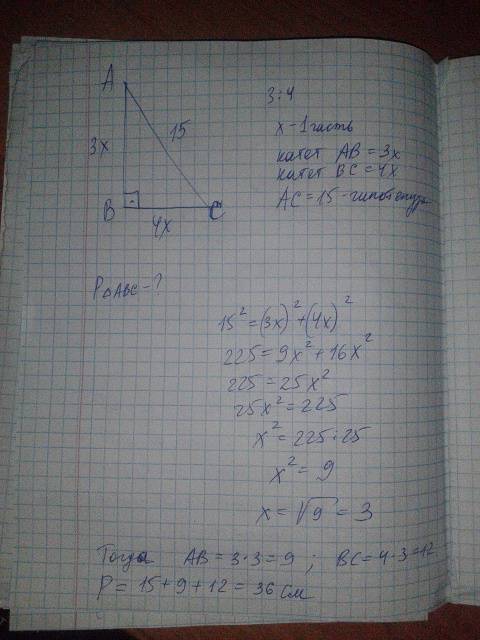 A
3x
15
B
4x
C
3:4
x - 1 часть
катет AB = 3x
катет BC = 4x
AC = 15 - гипотенуза
P△ABC - ?
15² = (3x)² + (4x)²
225 = 9x² + 16x²
225 = 25x²
25x² = 225
x² = 225:25
x² = 9
x = √9 = 3
Тогда AB = 3·3 = 9 ; BC = 4·3 = 12.
P = 15 + 9 + 12 = 36 см